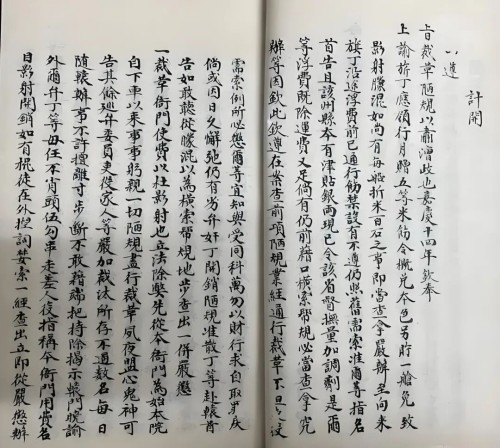 計開
一遵
旨裁革陋規以肅漕政也嘉慶十四年欽奉
上諭旂丁應領行月贈五等米飭令概免本色另貯一艙免致
影射朦混如尚有每船折米百石之事即當查拿嚴辦至向來
旗丁沿途浮費前已通行飭禁設有不遵仍照舊需索准爾等指名
首告且該州縣本有津貼銀兩現已令該省督撫量加調劑是爾
等浮費既除運費又足倘有仍前藉口橫索幫規必當查拿究
辦等因欽此欽遵在案查前項陋規業經通行裁革不旦之文
需索例所必懲爾等宜知與受同科萬勿以財行求自取罪戾
倘或因日久懈弛仍有劣弁奸丁開銷陋規准散丁等赴轅首
告如敢聽從朦混以為橫索幫規地步查出一併嚴懲
一裁革衙門使費以杜影射也立法除弊先從本衙門為始本院
自下車以來事事躬親一切陋規盡行裁革夙夜盟心鬼神可
告其餘巡弁委員吏役家人等嚴加裁汰所存不過數名每日
隨轅辦事不許擅離寸步斷不敢藉端把持除揭示轅門曉諭
外爾弁丁等毋任不肖頭伍勾串走差人役指稱本衙門用費名
目影射開銷如有棍徒在外撞詞婪索一經查出立即從嚴懲辦